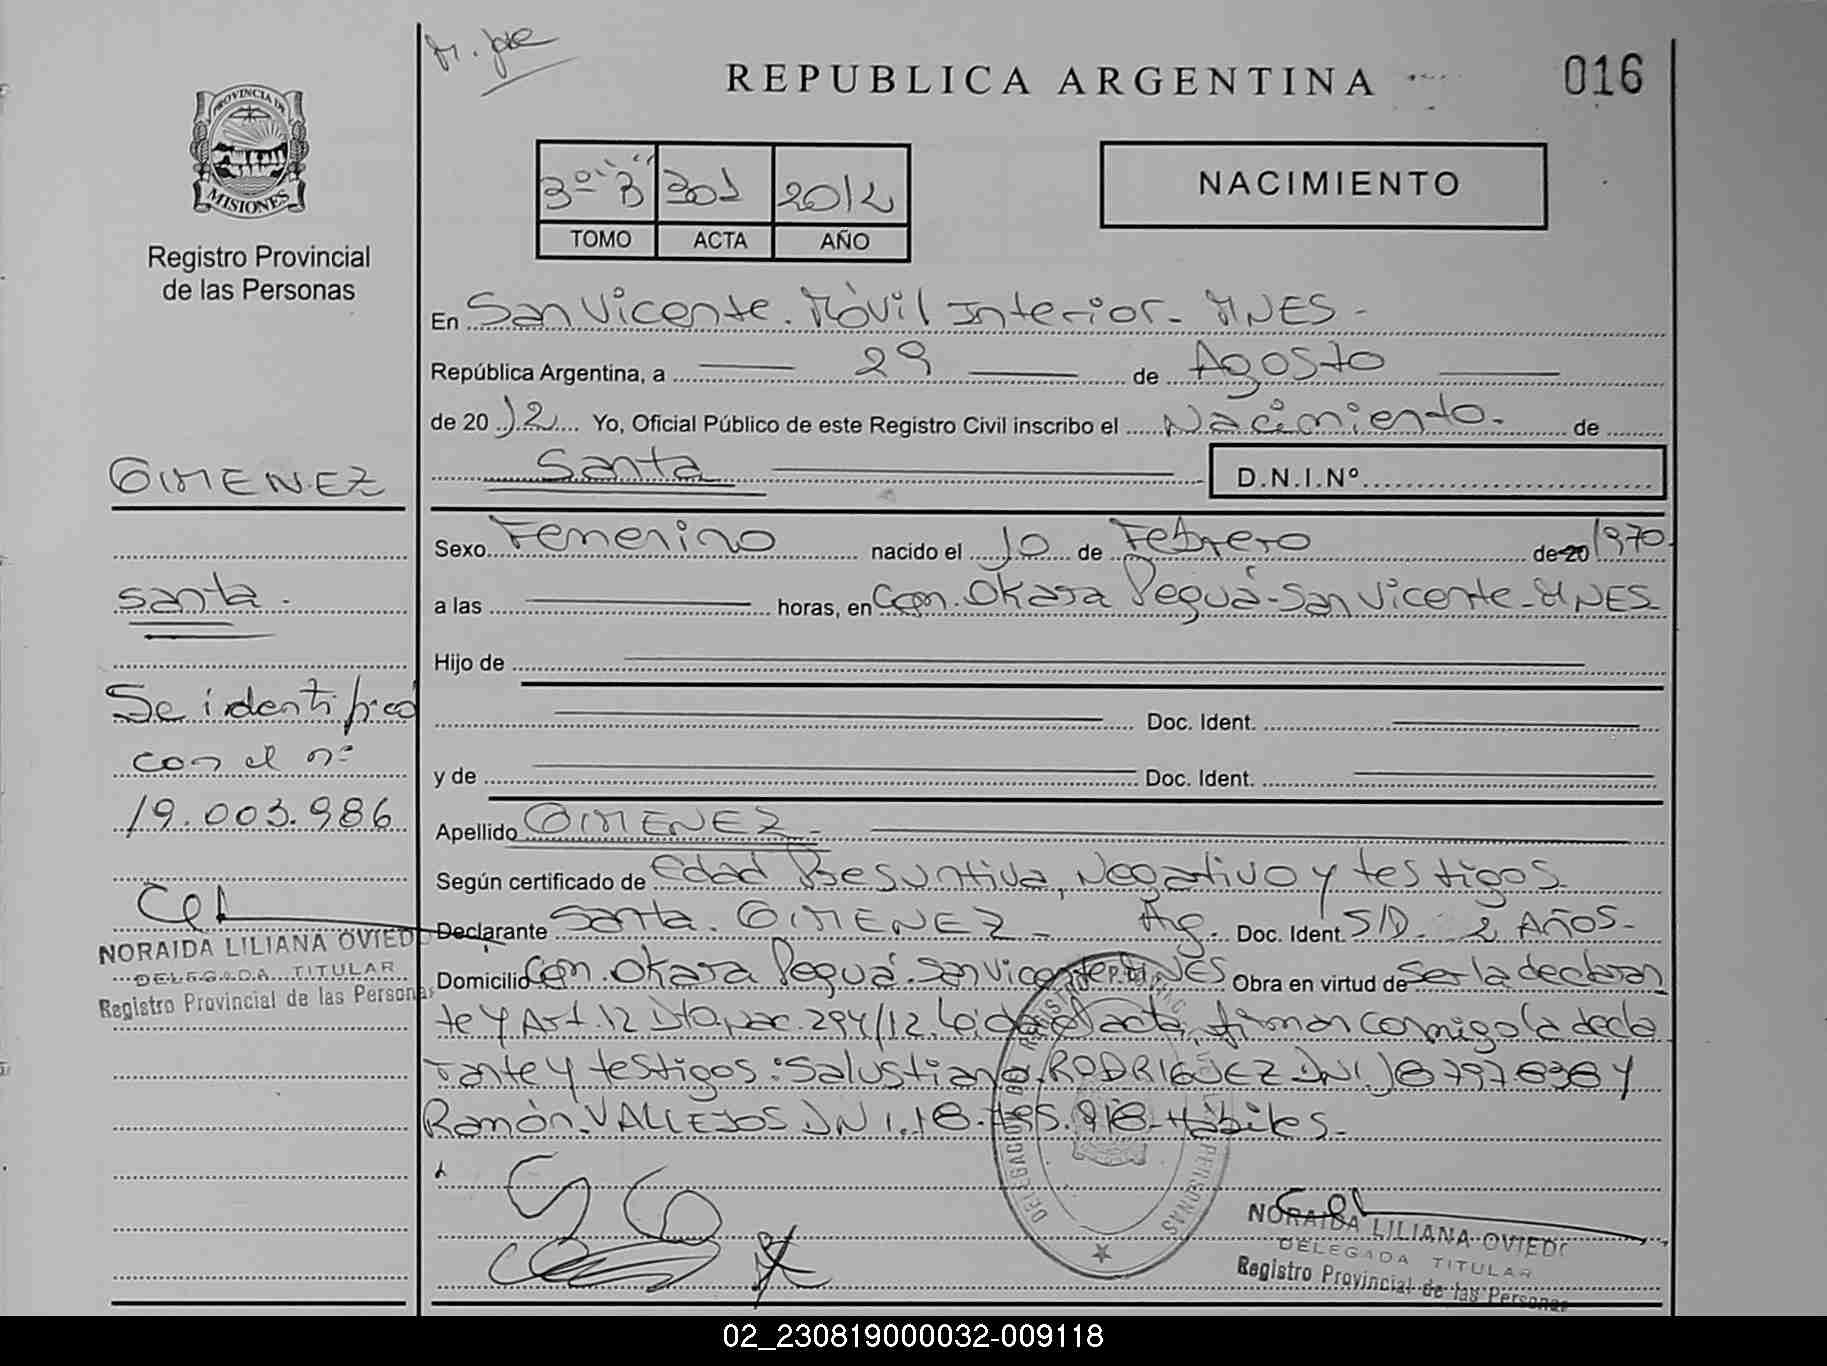 REPUBLICA ARGENTINA
016
PROVINCIA DE
MISIONES
Registro Provincial
de las Personas
3º "B" 301 2012
TOMO ACTA AÑO
NACIMIENTO
En San Vicente. Móvil Interior - MNES -
República Argentina, a 29 de Agosto
de 2012 Yo, Oficial Público de este Registro Civil inscribo el Nacimiento. de
Santa D.N.I.Nº
Sexo Femenino nacido el 10 de Febrero de 20 1970
a las horas, en Com. Okara Peguá - San Vicente - MNES
Hijo de
Doc. Ident.
y de Doc. Ident.
Apellido GIMENEZ -
Según certificado de Edad Presuntiva, Negativo y testigos.
Declarante Santa. GIMENEZ - Arg. Doc. Ident. S/D. 2 AÑOS -
Domicilio Com. Okara Peguá. San Vicente MNES Obra en virtud de ser la declaran
te y Art. 12 Dto. Nac. 294/12. Leída el acta, firman conmigo la decla
rante y testigos: Salustiano RODRIGUEZ DNI
Ramón. VALLEJOS DNI. 18. Hábiles -
GIMENEZ
santa.
Se identificó
con el nº
19.003.986
NORAIDA LILIANA OVIEDO
DELEGADA TITULAR
Registro Provincial de las Personas
NORAIDA LILIANA OVIEDO
DELEGADA TITULAR
Registro Provincial de las Personas
02_230819000032-009118